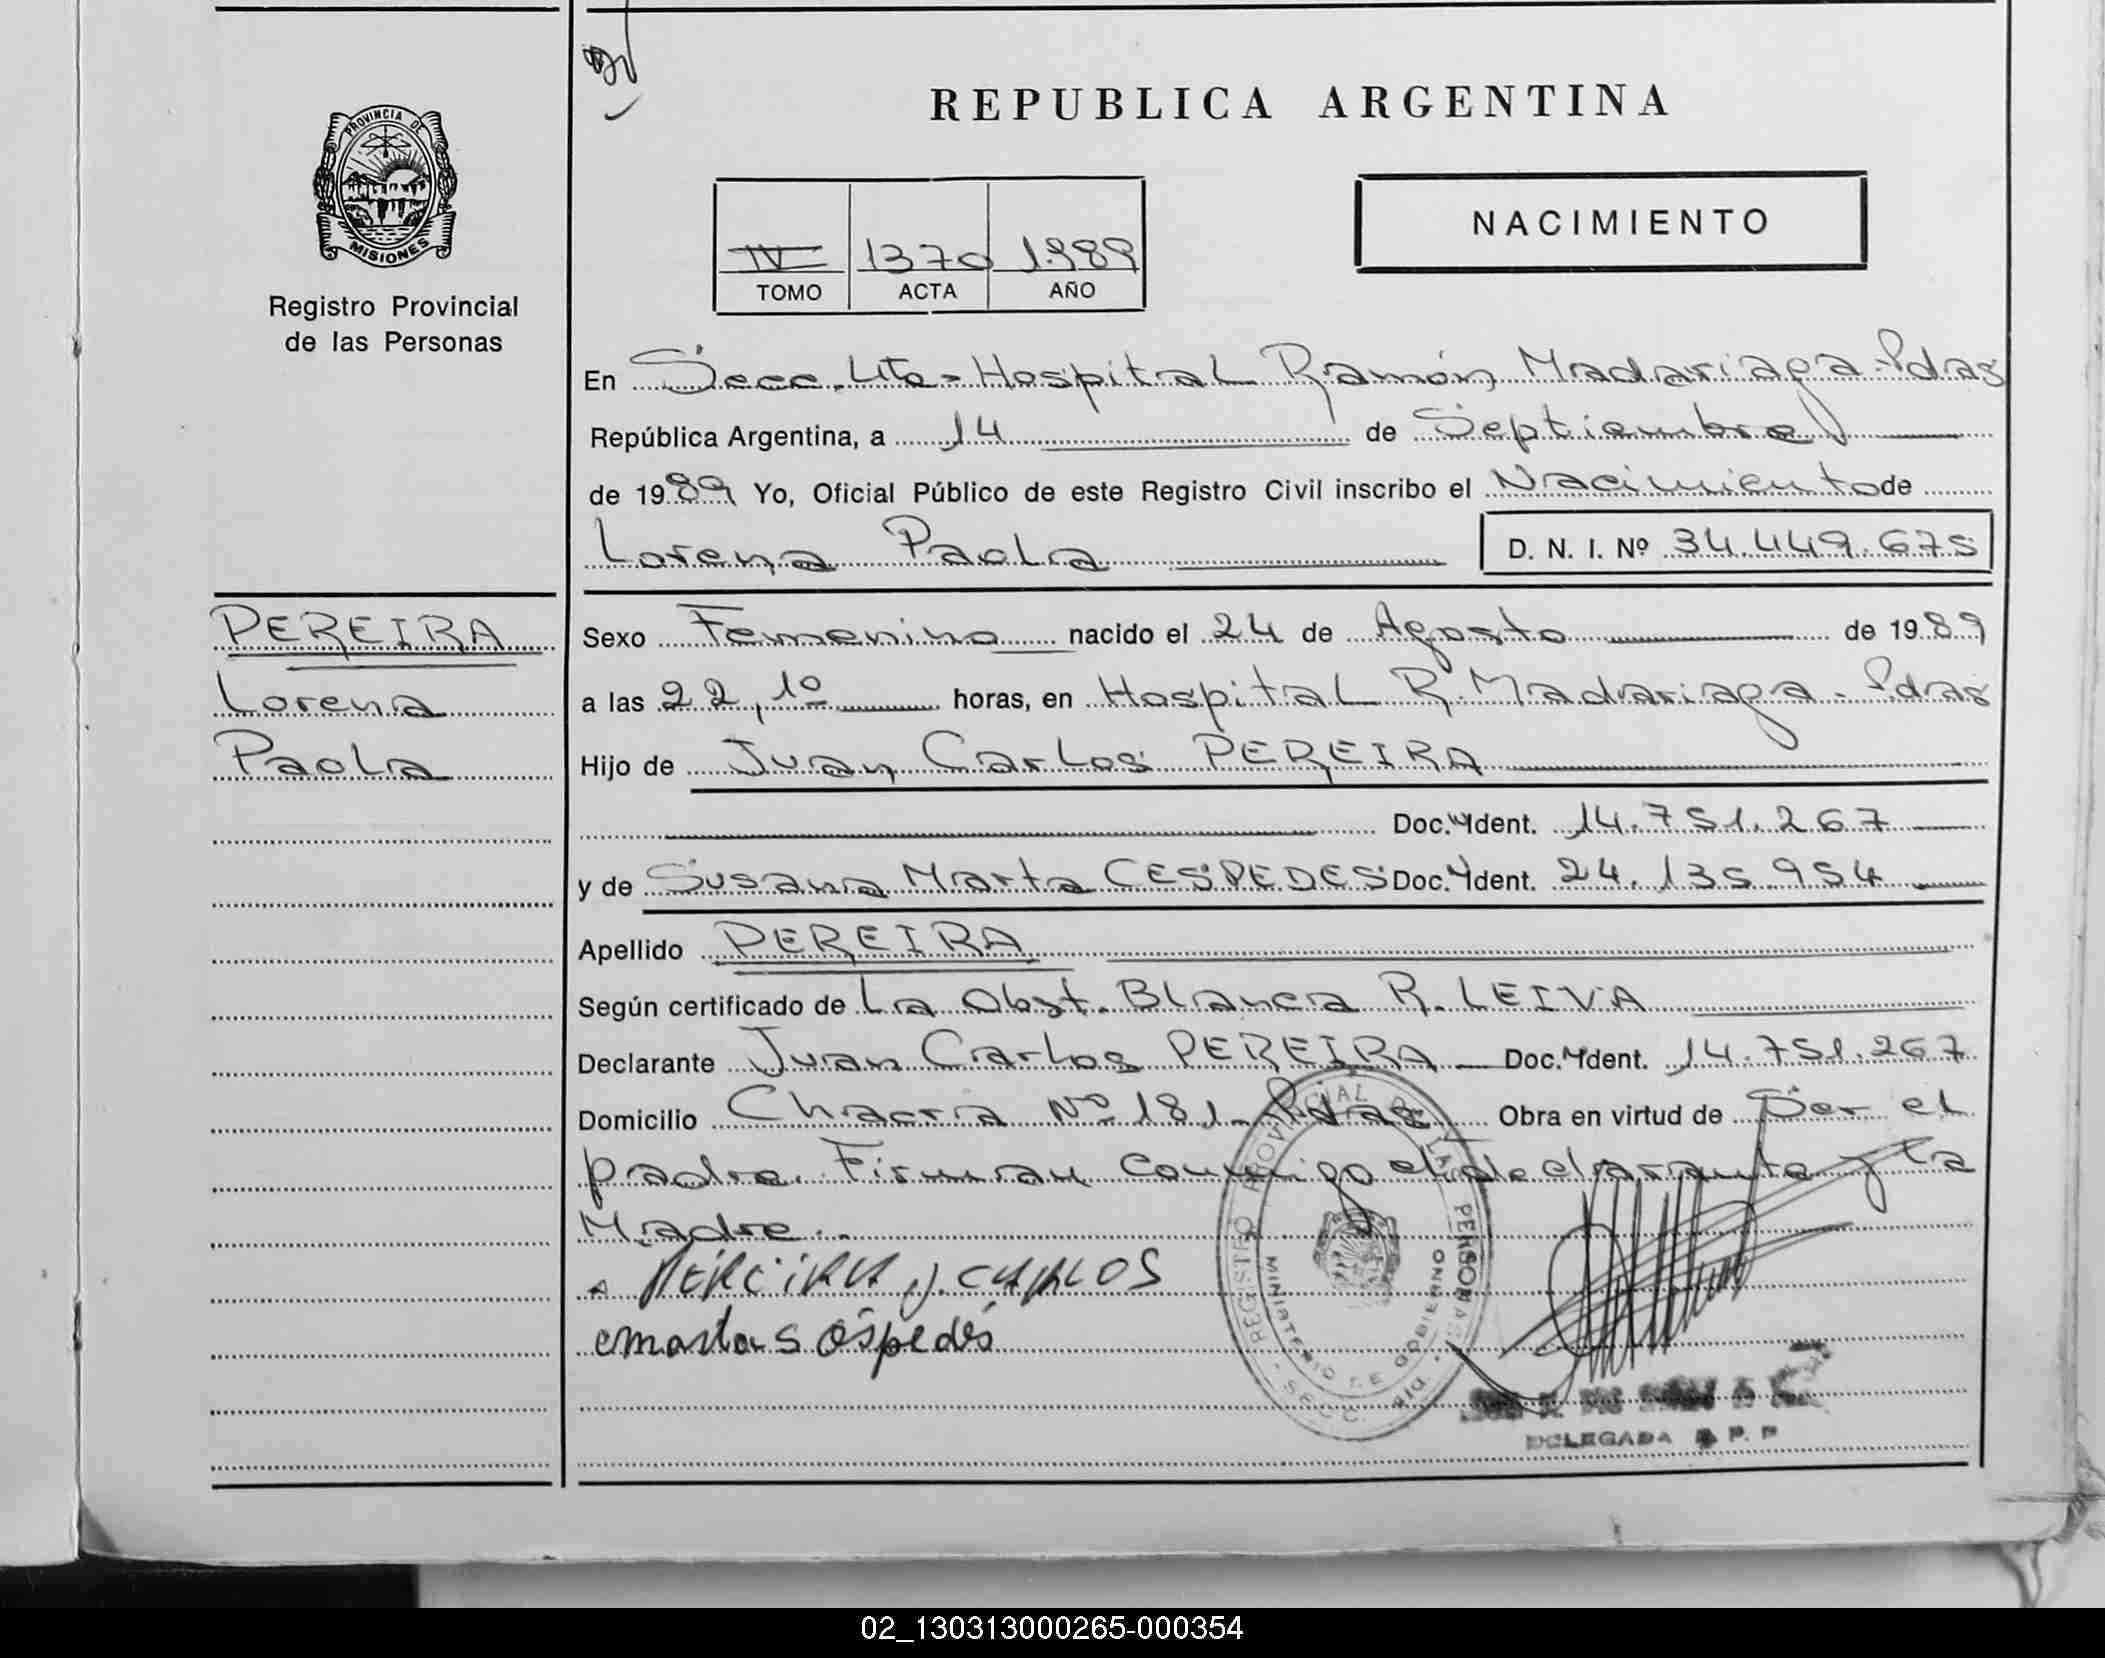 REPUBLICA ARGENTINA
PROVINCIA DE
MISIONES
Registro Provincial
de las Personas
NACIMIENTO
IV 1370 1989
TOMO ACTA AÑO
En Secc. 4ta - Hospital Ramón Madariaga - Pdas
República Argentina, a 14 de Septiembre
de 1989 Yo, Oficial Público de este Registro Civil inscribo el Nacimiento de
Lorena Paola D. N. I. Nº 34.449.675
PEREIRA
Lorena
Paola
Sexo Femenino nacido el 24 de Agosto de 1989
a las 22,10 horas, en Hospital R. Madariaga - Pdas
Hijo de Juan Carlos PEREIRA
Doc. Ident. 14.751.267
y de Susana Marta CESPEDES Doc. Ident. 24.135.954
Apellido PEREIRA
Según certificado de La Obst. Blanca R. LEIVA
Declarante Juan Carlos PEREIRA Doc. Ident. 14.751.267
Domicilio Chacra Nº 181 - Pdas Obra en virtud de Ser el
padre. Firman conmigo el declarante y la
Madre.
PEREIRA J. CARLOS
marta S
REGISTRO PROVINCIAL DE LAS PERSONAS
MINISTERIO DE GOBIERNO
SECC.
DELEGADA R. P. P
02_130313000265-000354